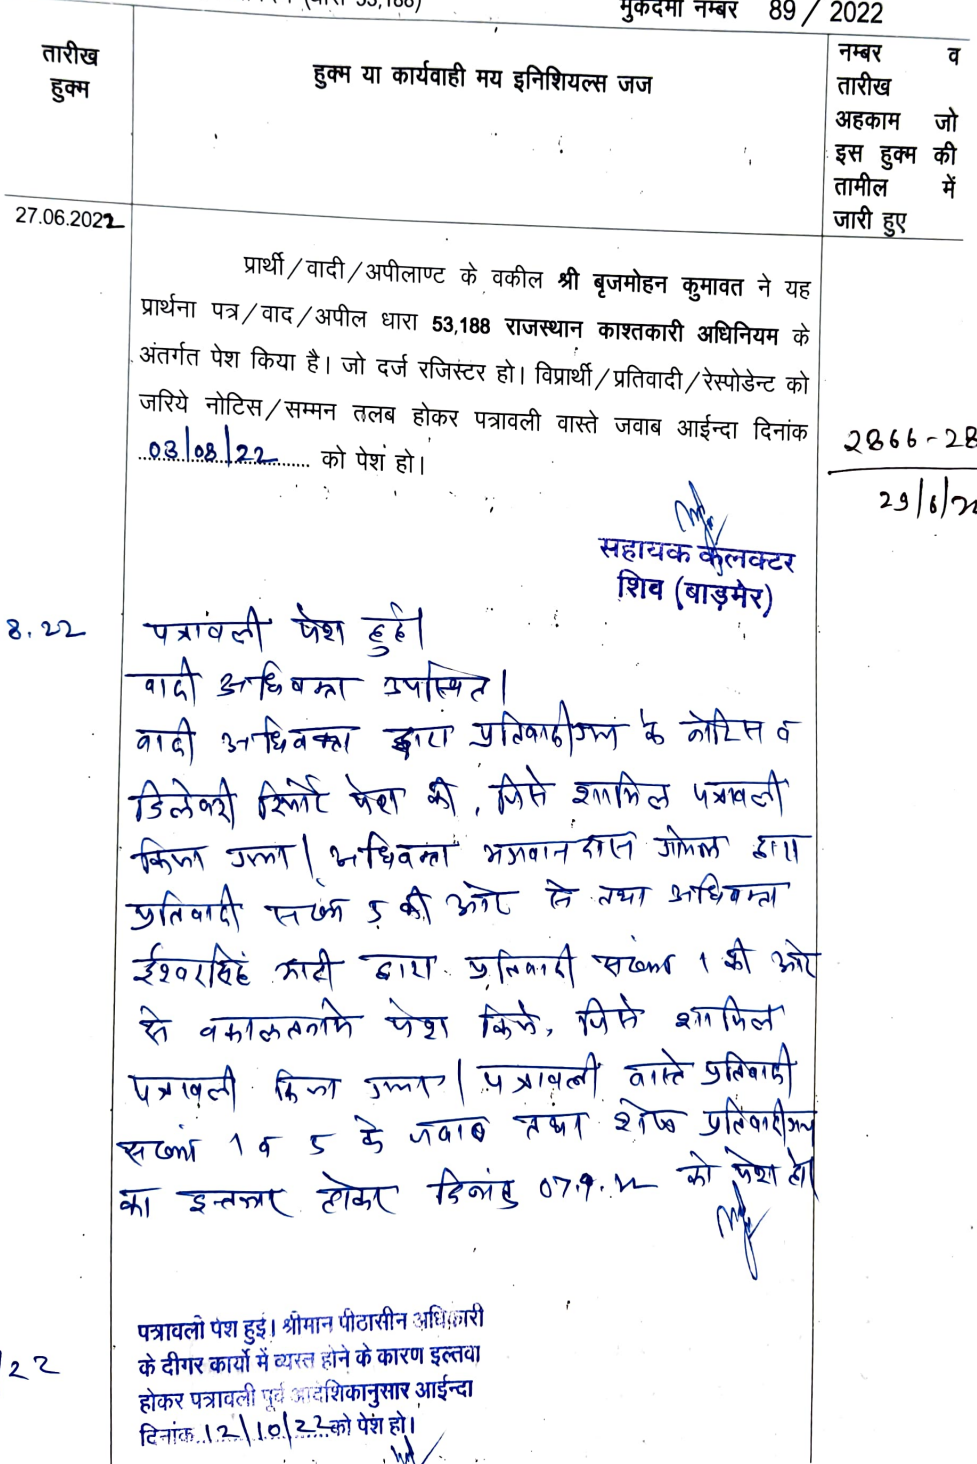 (धारा 53,188)
मुकदमा नम्बर 89 / 2022
तारीख
हुक्म
हुक्म या कार्यवाही मय इनिशियल्स जज
नम्बर व
तारीख
अहकाम जो
इस हुक्म की
तामील में
जारी हुए
27.06.2022
प्रार्थी/वादी/अपीलाण्ट के वकील श्री बृजमोहन कुमावत ने यह
प्रार्थना पत्र/वाद/अपील धारा 53,188 राजस्थान काश्तकारी अधिनियम के
अंतर्गत पेश किया है। जो दर्ज रजिस्टर हो। विप्रार्थी/प्रतिवादी/रेस्पोडेन्ट को
जरिये नोटिस/सम्मन तलब होकर पत्रावली वास्ते जवाब आईन्दा दिनांक
03/08/22 को पेश हो।
2866-28
29/6/
सहायक कलक्टर
शिव (बाड़मेर)
8.22
पत्रावली पेश हुई।
वादी अधिवक्ता उपस्थित।
वादी अधिवक्ता द्वारा प्रतिवादीगण के नोटिस व
डिलेवरी रिपोर्ट पेश की, जिसे शामिल पत्रावली
किया गया। अधिवक्ता भगवानदास गोयल द्वारा
प्रतिवादी संख्या 5 की ओर से तथा अधिवक्ता
ईश्वरसिंह भाटी द्वारा प्रतिवादी संख्या 1 की ओर
से वकालतनामे पेश किये, जिसे शामिल
पत्रावली किया गया। पत्रावली वास्ते प्रतिवादी
संख्या 1 व 5 के जवाब तथा शेष प्रतिवादीगण
का इन्तजार होकर दिनांक 07.9.22 को पेश हो।
पत्रावली पेश हुई। श्रीमान पीठासीन अधिकारी
/22
के दीगर कार्यो में व्यस्त होने के कारण इल्तवा
होकर पत्रावली पूर्व आदेशिकानुसार आईन्दा
दिनांक 12/10/22 को पेश हो।